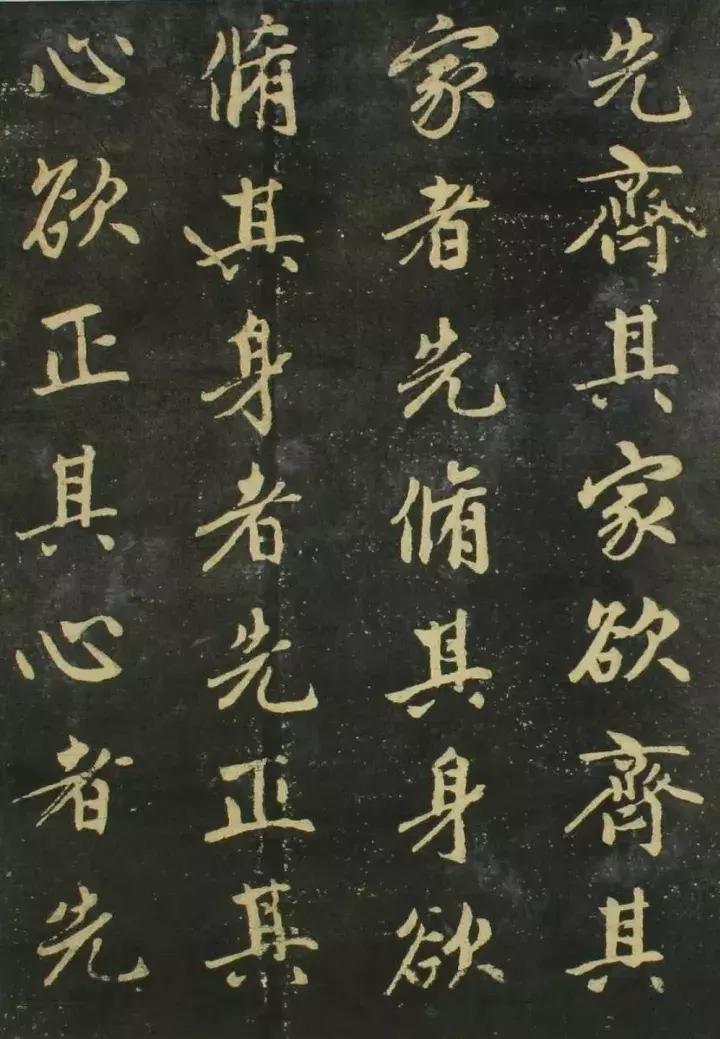 先齊其家欲齊其
家者先脩其身欲
脩其身者先正其
心欲正其心者先